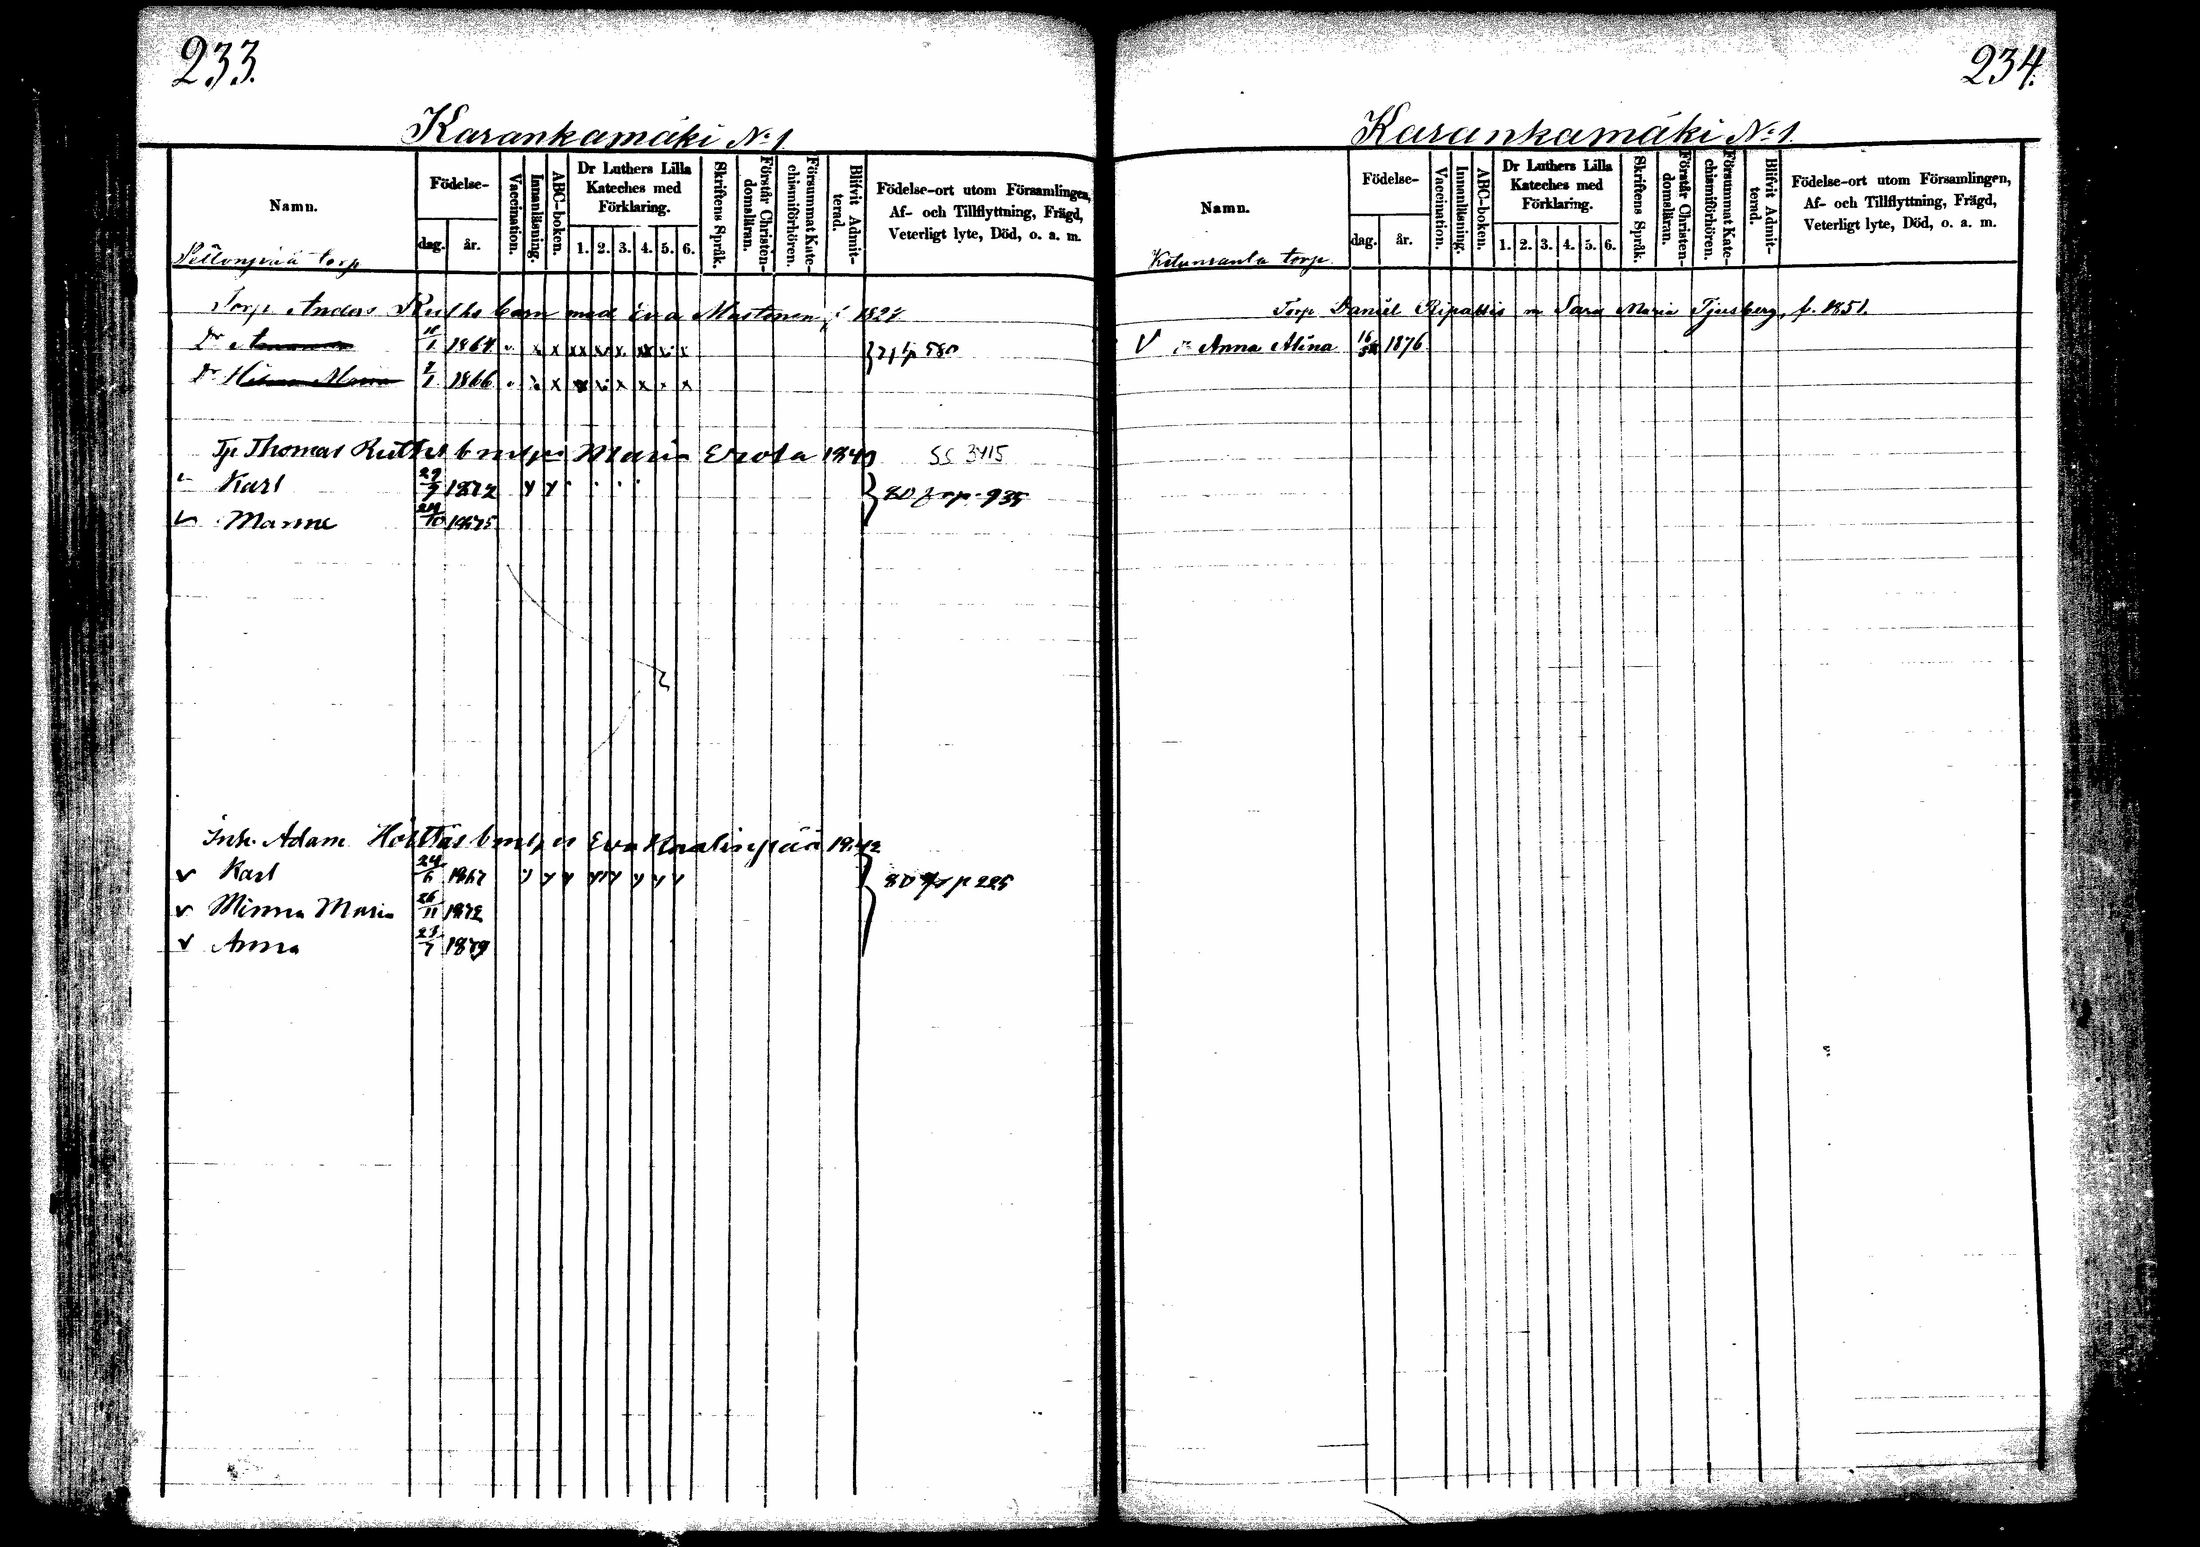 233.
Karankamäki No 1.
Namn.
Födelse-
dag.
år.
Vaccination.
Innanläsning.
ABC-boken.
Dr Luthers Lilla Kateches med Förklaring.
1. 2. 3. 4. 5. 6.
Skriftens Språk.
Förstår Christendomsläran.
Försummat Katechismiförhören.
Blifvit Admitterad.
Födelse-ort utom Församlingen,
Af- och Tillflyttning, Frägd,
Veterligt lyte, Död, o. a. m.
torp
Torp Anders Ruths barn med Eva Mustonen f 1824
Dr 10/1 1864 x x xx x x xx x x
Dr Hilma Maria 2/1 1866 x x x x x x x x
Tp Thomas Ruths Maria Erola 1840 SS 3415
Karl 29/9 1872 935
Manne 24/10 1875
Inh. Adam Hölttäs Eva 1842
v Karl 24/6 1867 p 225
v Minna Maria 26/11 1872
v Anna 23/7 1879
234.
Karankamäki No 1.
Namn.
Födelse-
dag.
år.
Vaccination.
Innanläsning.
ABC-boken.
Dr Luthers Lilla Kateches med Förklaring.
1. 2. 3. 4. 5. 6.
Skriftens Språk.
Förstår Christendomsläran.
Försummat Katechismiförhören.
Blifvit Admitterad.
Födelse-ort utom Församlingen,
Af- och Tillflyttning, Frägd,
Veterligt lyte, Död, o. a. m.
torp.
Torp Daniel Ripattis m Sara Maria Tjusberg, f. 1851.
V Dr Anna Alina 1876